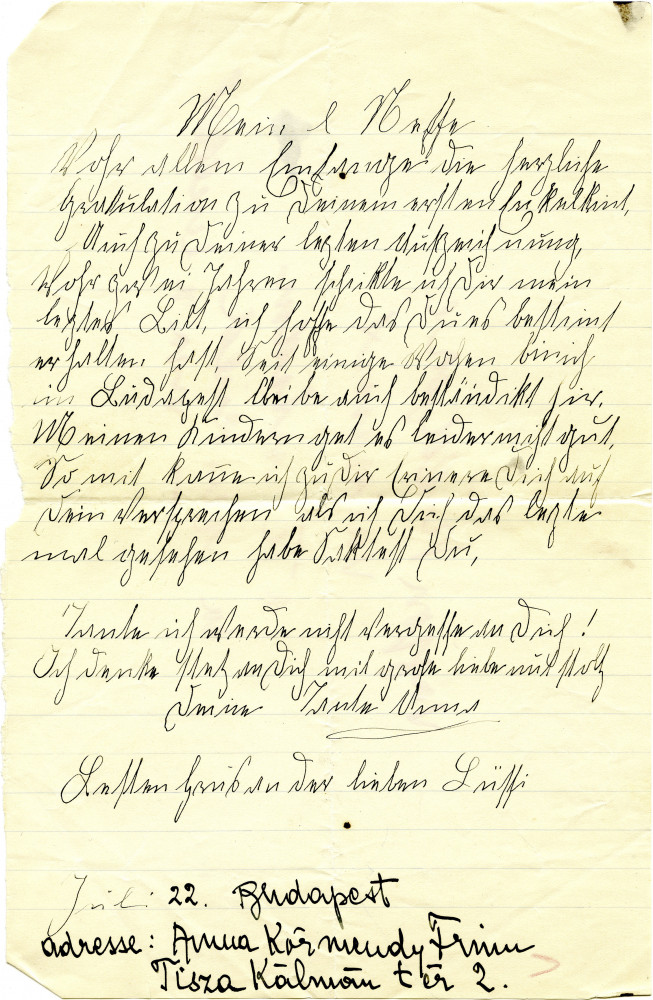 Mein l Neffe
Vohr allem Emfange die herzliche
Gratulation zu Deinem ersten Enkelkint,
Auch zu Deiner lezten Auszeichnung,
Vohr zwei Jahren schikte ich Dir mein
leztes Bilt, ich hoffe das Du es bestimt
erhalten hast, Seit einige Wochen bin ich
in Budapest bleibe auch beständikt hier.
Meinen Kindern get es leider nicht gut,
So mit kom̄e ich zu Dir Erinere Dich auf
Dein Versprechen als ich Dich das lezte
mal gesehen habe Saktest Du,
Tante ich werde nicht vergesse an Dich!
Ich denke stez an Dich mit große liebe und stolz
Deine Tante Anna
Besten Grus an der lieben Lüssi
Juli 22. Budapest
adresse: Anna Körmendy Frim
Tisza Kálmán tér 2.